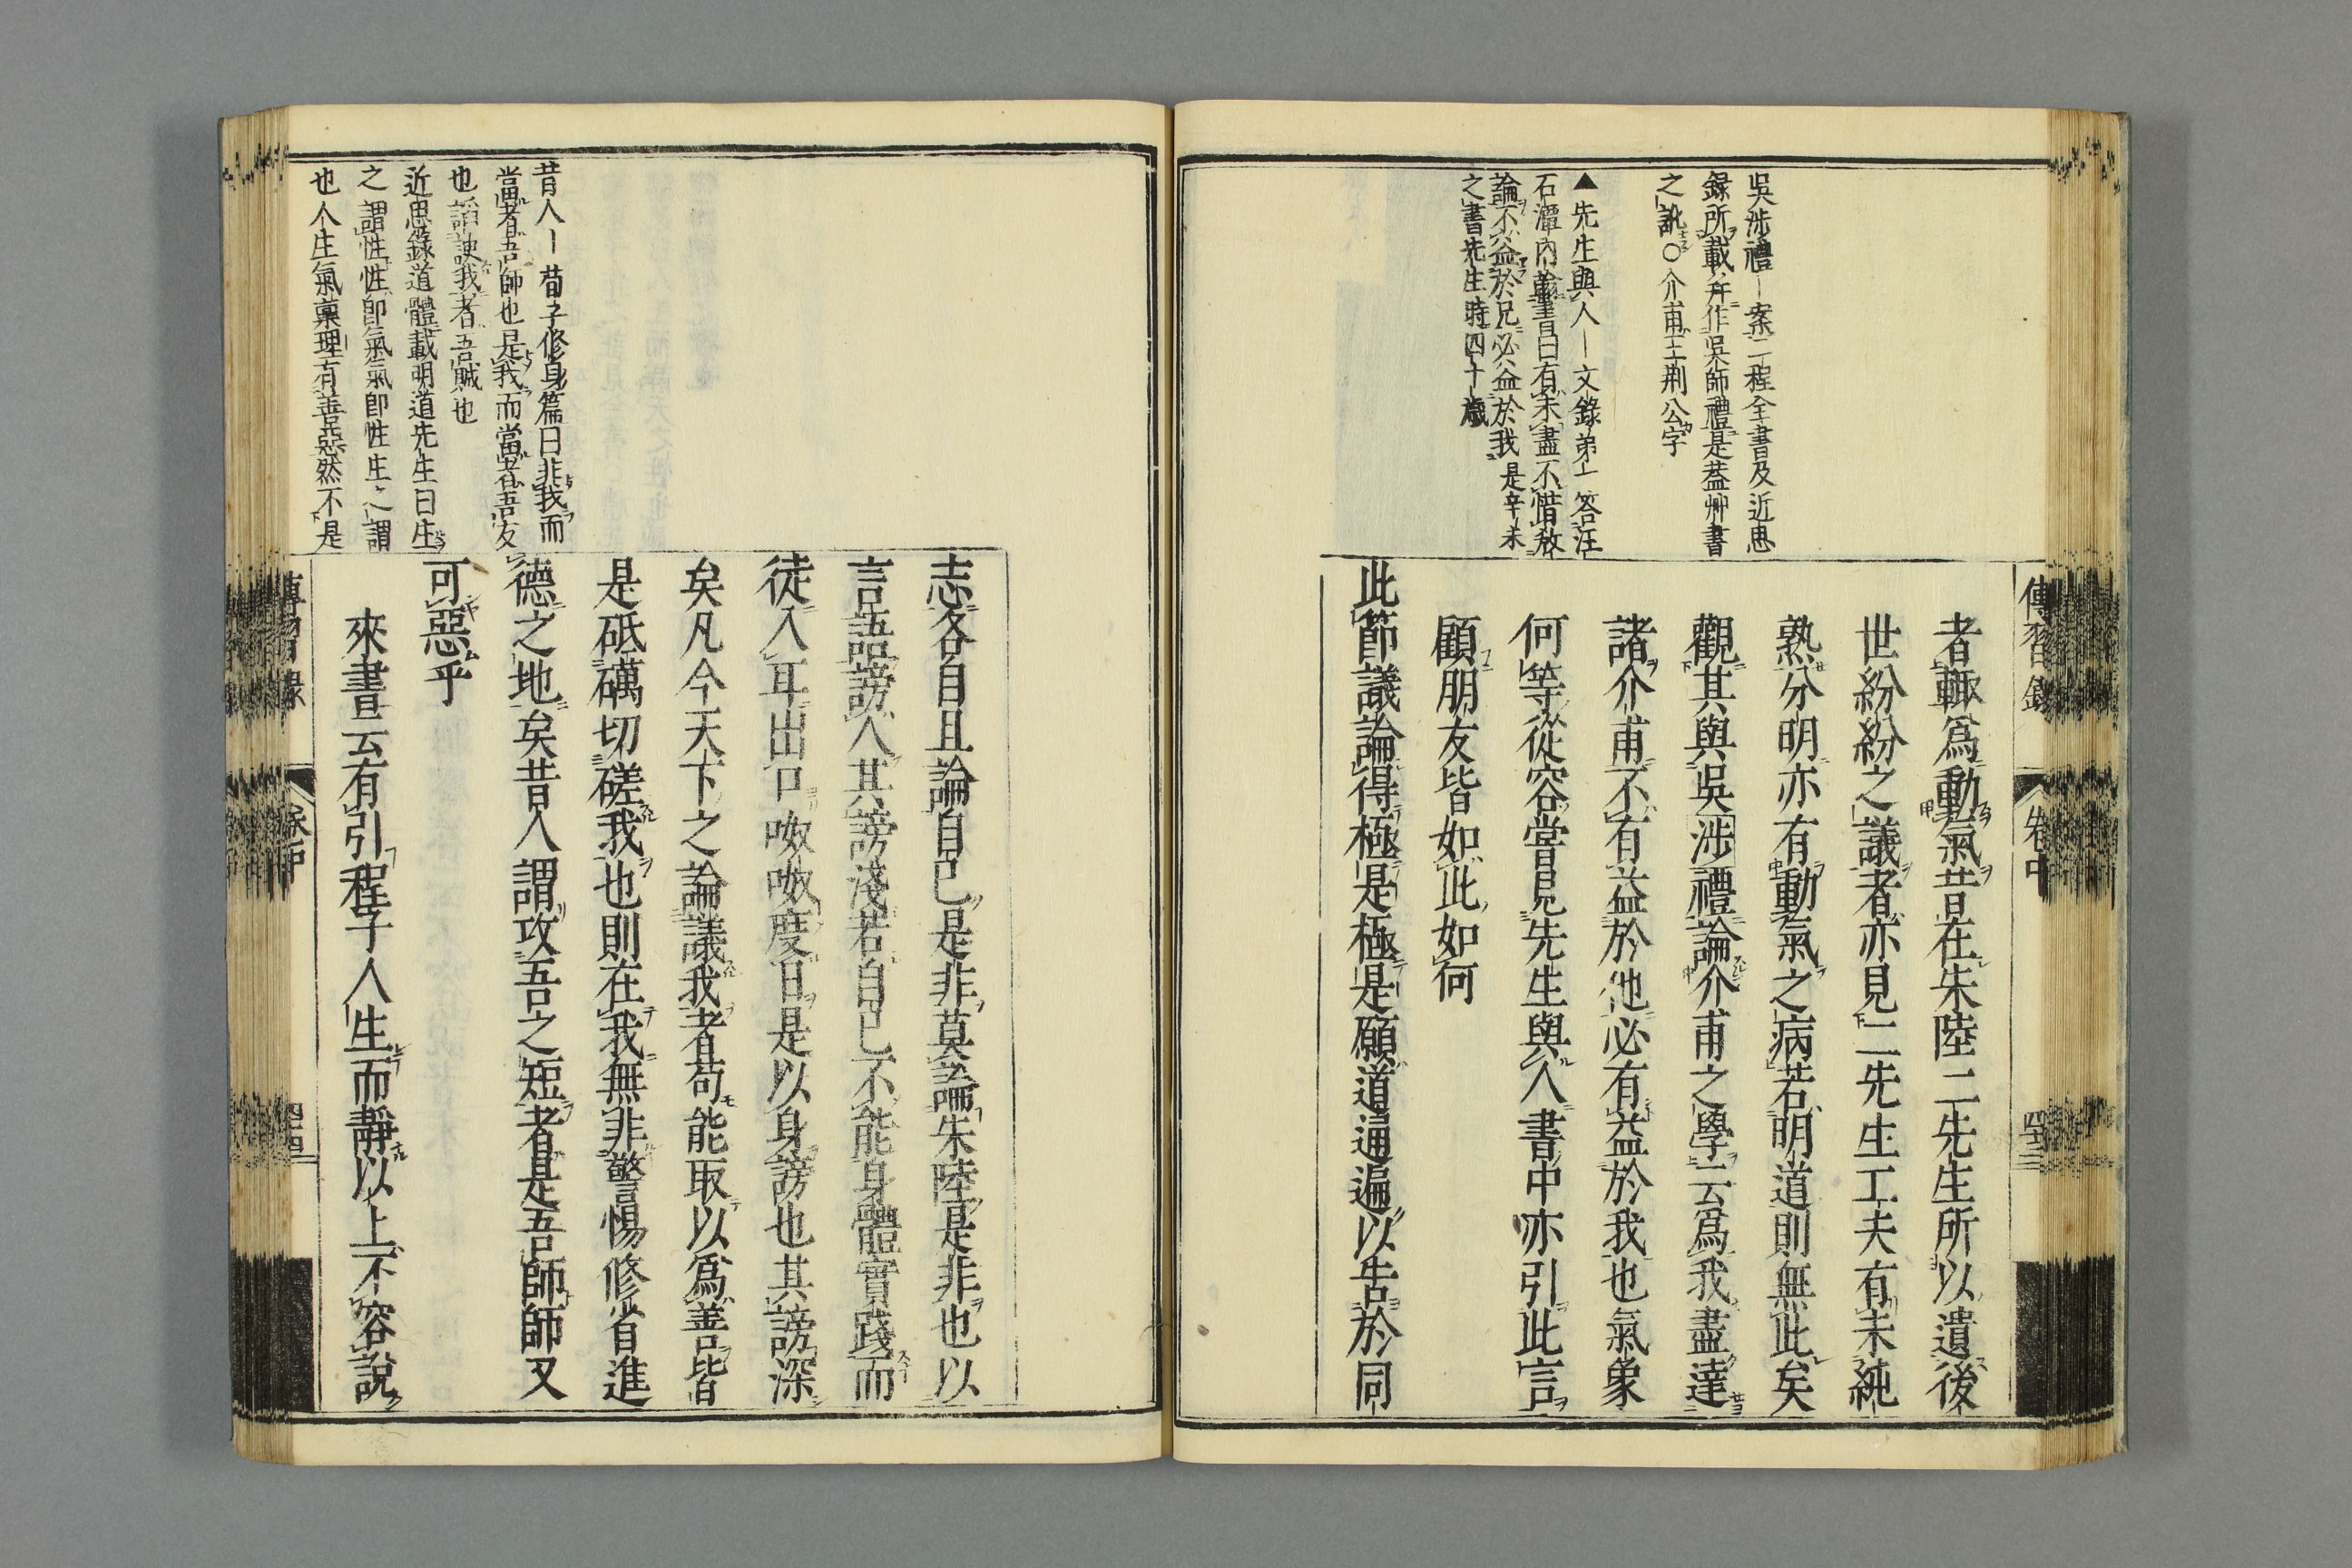 吳涉禮｜案二程全書及近思
錄所載幷作吳師禮是葢艸書
之訛〇介甫王荆公字
▲先生與人｜文錄弟一答汪
石潭內翰書曰有未盡不惜敎
論不益於兄必益於我是辛未
之書先生時四十歲
傳習錄
卷中
四十三
者輙爲動氣昔在朱陸二先生所以遺後
世紛紛之議者亦見二先生工夫有未純
熟分明亦有動氣之病若明道則無此矣
觀其與吳涉禮論介甫之學云爲我盡達
諸介甫不有益於他必有益於我也氣象
何等從容嘗見先生與人書中亦引此言
願朋友皆如此如何
此節議論得極是極是願道通遍以告於同
昔人｜荀子修身篇曰非我而
當者吾師也是我而當者吾友
也謟諛我者吾賊也
近思錄道體載明道先生曰生
之謂性性卽氣氣卽性生之謂
也人生氣稟理有善惡然不是
志各自且論自己是非莫論朱陸是非也以
言語謗人其謗淺若自己不能身體實踐而
徒入耳出口呶呶度日是以身謗也其謗深
矣凡今天下之論議我者苟能取以爲善皆
是砥礪切磋我也則在我無非警惕修省進
德之地矣昔人謂攻吾之短者是吾師師又
可惡乎
來書云有引程子人生而靜以上不容說
傳習錄
卷中
四十四